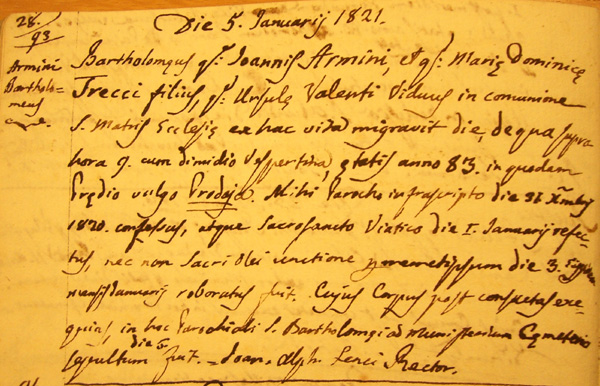 28.
93
Die 5. Januarij 1821.
Armini
Bartholo=
meus
Bartholomęus qm. Joannis Armini, et qm. Marię Dominicę
Trecci filius, qm. Ursulę Valenti Viduus in comunione
S. Matris Ecclesię ex hac vita migravit die, de qua supra
hora 9. cum dimidio Vespertina, ętatis anno 83. in quodam
Prędio vulgo Prodaja. Mihi Parocho infrascripto die 31 Xmbris
1820. confessus, atque Sacrosancto Viatico die I. Januarij refec=
tus, nec non Sacri Olei unctione per memetipsum die 3.
Januarij roboratus fuit. Cujus Corpus post consuetas exe=
quias, in hoc Parochiali S. Bartholomęi ad Cęmeterio
sepultum die 6. fuit. Joan. Alph. Rector.